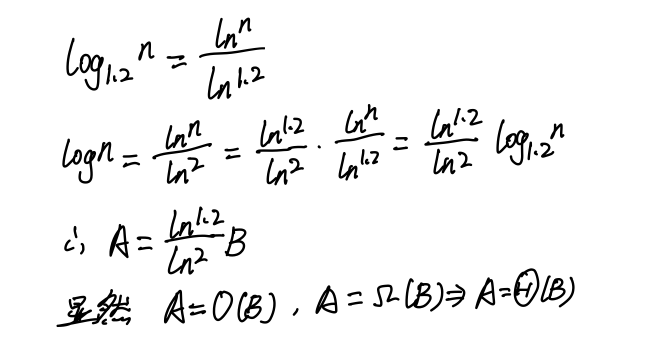 log₁.₂ n = ln n / ln 1.2
log n = ln n / ln 2 = ln 1.2 / ln 2 · ln n / ln 1.2 = ln 1.2 / ln 2 log₁.₂ n
∴ A = ln 1.2 / ln 2 B
显然 A = O(B) , A = Ω(B) ⇒ A = Θ(B)